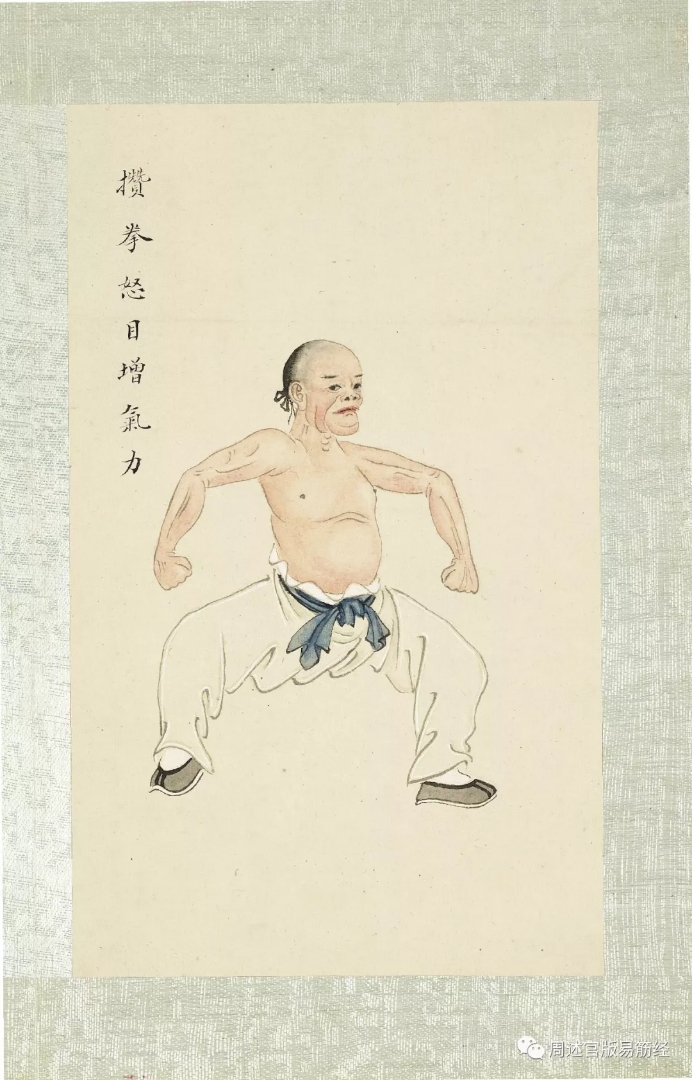 攢拳怒目增氣力
周述官版易筋经